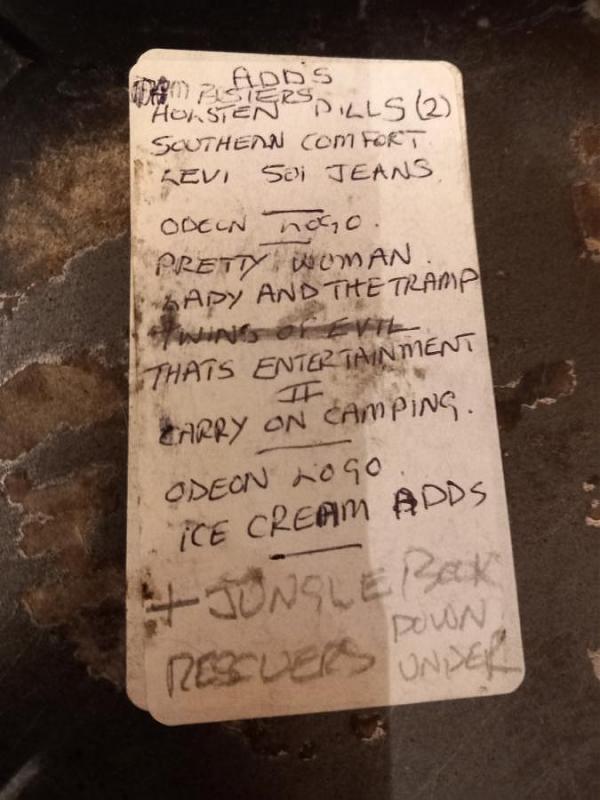 ADDS
DAM BUSTERS
HOLSTEN PILLS (2)
SOUTHERN COMFORT
LEVI 501 JEANS
ODEON LOGO.
PRETTY WOMAN.
LADY AND THE TRAMP
TWINS OF EVIL
THATS ENTERTAINMENT
II
CARRY ON CAMPING.
ODEON LOGO.
ICE CREAM ADDS
+ JUNGLE BOOK
RESCUERS DOWN
UNDER